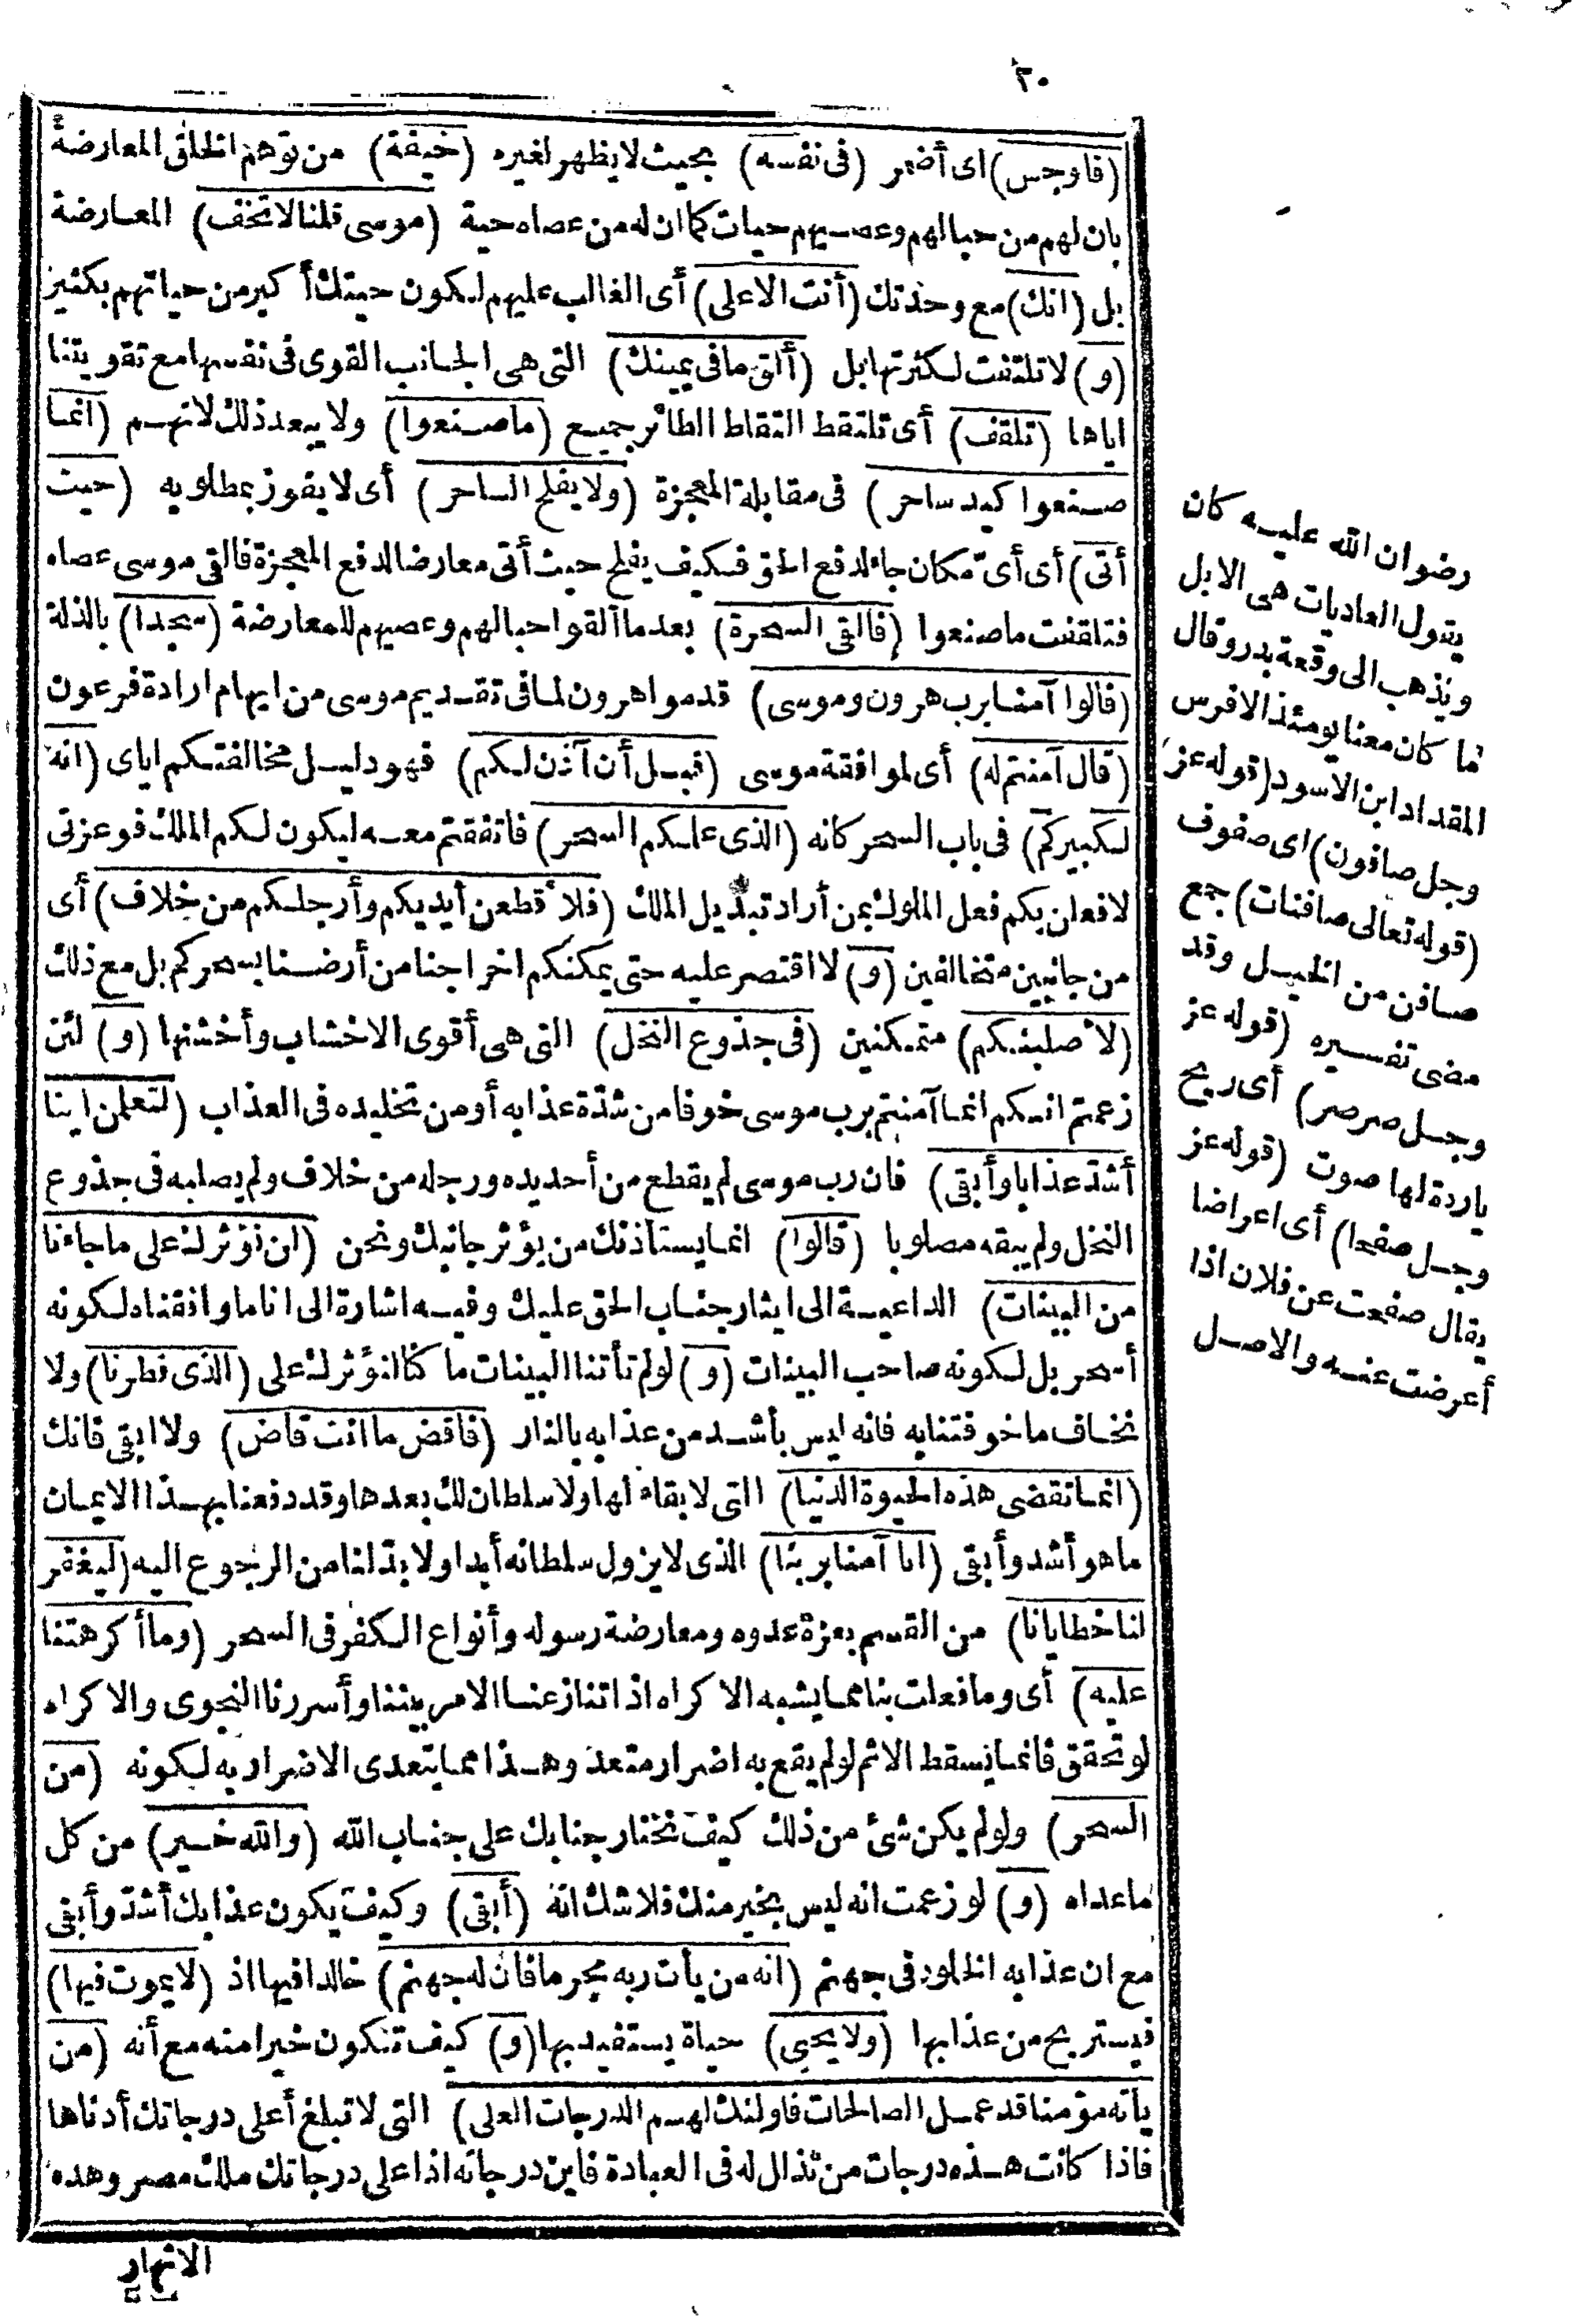 ٢٠
(فاوجس) اى أضمر (فى نفسه) بحيث لا يظهر لغيره (خيفة) من توهم الخلق المعارضة
بان لهم من حبالهم وعصيهم حيات كما ان له من عصاه حية (موسى قلنا لا تخف) المعارضة
بل (انك) مع وحدتك (أنت الاعلى) أى الغالب عليهم لكون حيتك أكبر من حياتهم بكثير
(و) لا تلتفت لكثرتها بل (ألق ما فى يمينك) التى هى الجانب القوى فى نفسها مع تقويتنا
اياها (تلقف) أى تلتقط التقاط الطائر جميع (ما صنعوا) ولا يبعد ذلك لانهم (انما
صنعوا كيد ساحر) فى مقابلة المعجزة (ولا يفلح الساحر) أى لا يفوز بمطلوبه (حيث
أتى) أى أىّ مكان جاء لدفع الحق فكيف يفلح حيث أتى معارضا لدفع المعجزة فالقى موسى عصاه
فتلقفت ما صنعوا (فالقى السحرة) بعد ما ألقوا حبالهم وعصيهم للمعارضة (سجدا) بالذلة
(قالوا آمنا برب هرون وموسى) قدموا هرون لما فى تقديم موسى من ايهام ارادة فرعون
(قال آمنتم له) أى لموافقة موسى (قبل أن آذن لكم) فهو دليل مخالفتكم اياى (انه
لكبيركم) فى باب السحر كانه (الذى علمكم السحر) فاتفقتم معه ليكون لكم الملك فوعزتى
لافعلن بكم فعل الملوك بمن أراد تبديل الملك (فلأقطعن أيديكم وأرجلكم من خلاف) أى
من جانبين متخالفين (و) لا اقتصر عليه حتى يمكنكم اخراجنا من أرضنا بسحركم بل مع ذلك
(لأصلبنكم) متمكنين (فى جذوع النخل) التى هى أقوى الاخشاب وأخشنها (و) لئن
زعمتم انكم انما آمنتم برب موسى خوفا من شدّة عذابه أو من تخليده فى العذاب (لتعلمن اينا
أشدّ عذابا وأبقى) فان رب موسى لم يقطع من أحد يده ورجله من خلاف ولم يصلبه فى جذوع
النخل ولم يبقه مصلوبا (قالوا) انما يستاذنك من يؤثر جانبك ونحن (لن نؤثرك على ما جاءنا
من البينات) الداعية الى ايثار جناب الحق عليك وفيه اشارة الى انا ما وافقناه لكونه
أسحر بل لكونه صاحب البينات (و) لو لم تأتنا البينات ما كنا لنؤثرك على (الذى فطرنا) ولا
نخاف ما خوفتنا به فانه ليس بأشد من عذابه بالنار (فاقض ما انت قاض) ولا ابقى فانك
(انما تقضى هذه الحيوة الدنيا) التى لا بقاء لها ولا سلطان لك بعدها وقد دفعنا بهذا الايمان
ما هو أشد وأبقى (انا آمنا بربنا) الذى لا يزول سلطانه أبدا ولا بدّ لنا من الرجوع اليه (ليغفر
لنا خطايانا) من القسم بعزة عدوه ومعارضة رسوله وأنواع الكفر فى السحر (وما أكرهتنا
عليه) أى وما فعلت بنا مما يشبه الاكراه اذ اتنازعنا الامر بيننا وأسررنا النجوى والاكراه
لو تحقق فانما يسقط الاثم لو لم يقع به اضرار متعد وهذا مما يتعدى الاضرار به لكونه (من
السحر) ولو لم يكن شئ من ذلك كيف نختار جنابك على جناب الله (والله خير) من كل
ما عداه (و) لو زعمت انه ليس بخير منك فلا شك انه (أبقى) وكيف يكون عذابك أشدّ وأبقى
مع ان عذابه الخلود فى جهنم (انه من يأت ربه مجرما فان له جهنم) خالدا فيها اذ (لا يموت فيها)
فيستريح من عذابها (ولا يحيى) حياة يستفيد بها (و) كيف تكون خيرا منه مع أنه (من
يأته مؤمنا قد عمل الصالحات فاولئك لهم الدرجات العلى) التى لا تبلغ أعلى درجاتك أدناها
فاذا كانت هذه درجات من تذلل له فى العبادة فاين درجاته اذ اعلى درجاتك ملك مصر وهذه
الانهار
رضوان الله عليه كان
يقول العاديات هى الابل
ويذهب الى وقعة بدر وقال
ما كان معنا يومئذ الا فرس
المقداد ابن الاسود (قوله عز
وجل صافون) اى صفوف
(قوله تعالى صافنات) جمع
صافن من الخيل وقد
مضى تفسيره (قوله عز
وجل صرصر) أى ريح
باردة لها صوت (قوله عز
وجل صفحا) أى اعراضا
يقال صفحت عن فلان اذا
أعرضت عنه والاصل